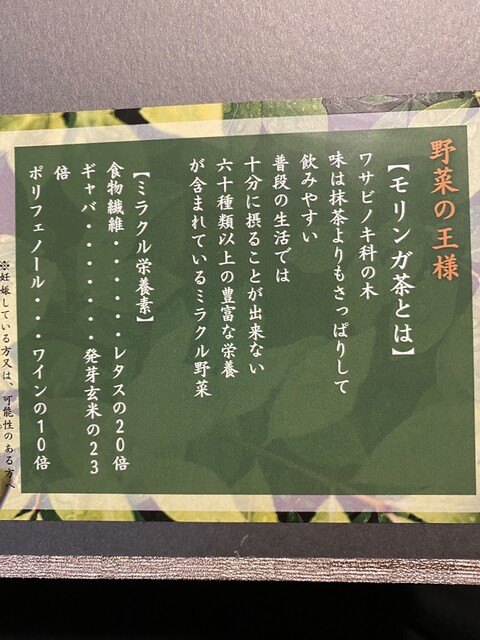 野菜の王様
【モリンガ茶とは】
ワサビノキ科の木
味は抹茶よりもさっぱりして
飲みやすい
普段の生活では
十分に摂ることが出来ない
六十種類以上の豊富な栄養
が含まれているミラクル野菜
【ミラクル栄養素】
食物繊維・・・・・・レタスの20倍
ギャバ・・・・・・・発芽玄米の23
倍
ポリフェノール・・・ワインの10倍
※妊娠している方又は、可能性のある方へ